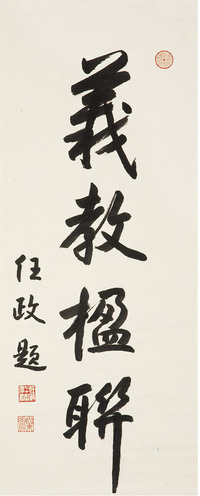 義教楹聯
任政題